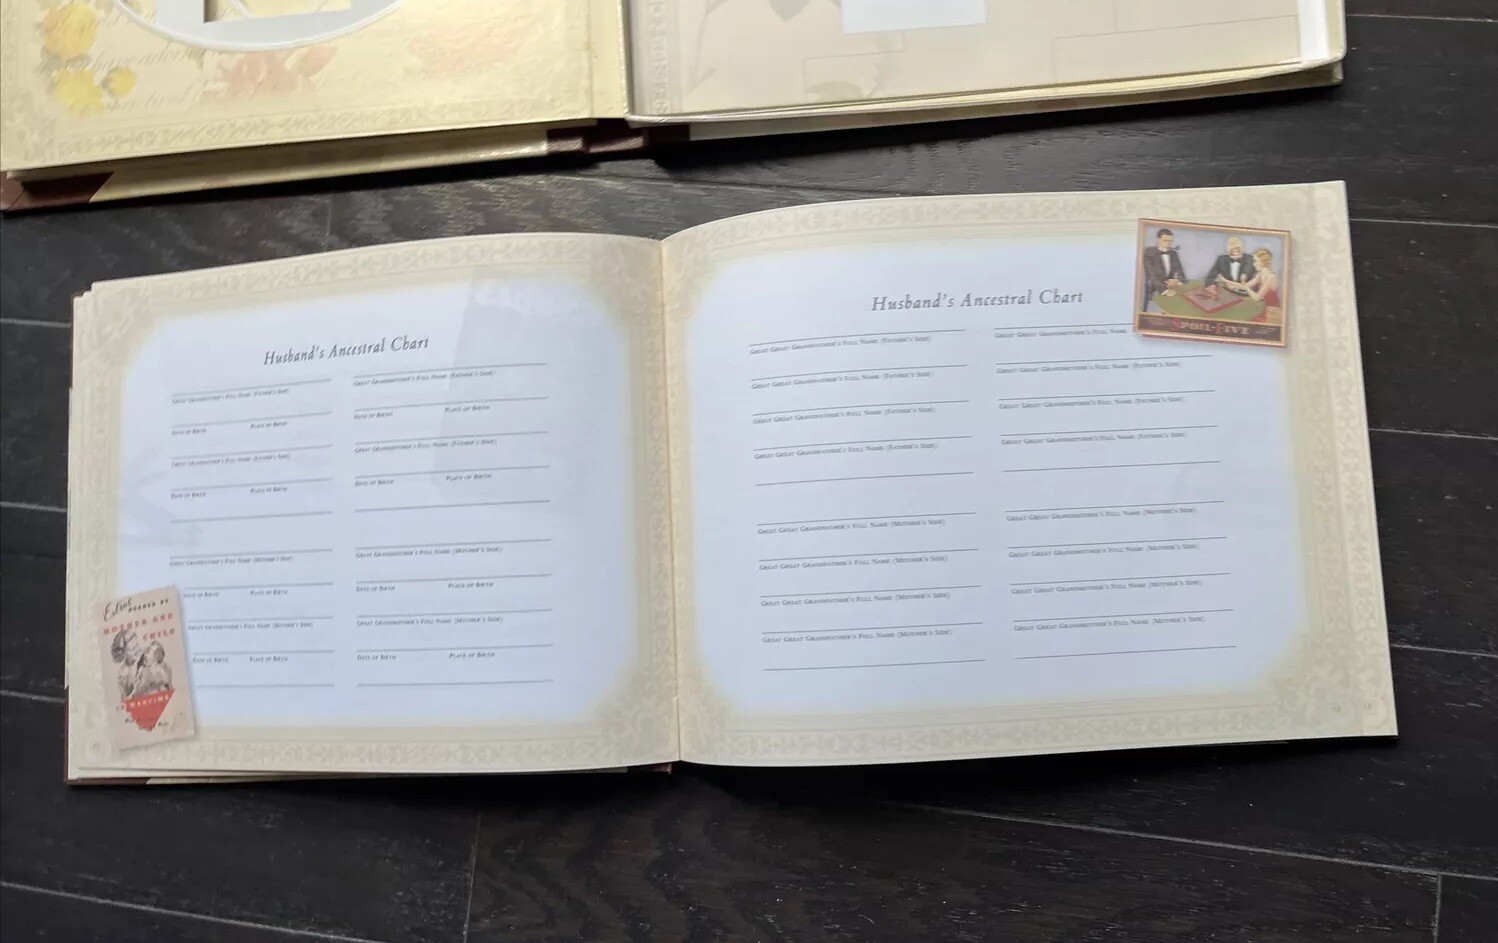 Husband's Ancestral Chart
Great Grandfather's Full Name (Father's Side)
Great Grandmother's Full Name (Father's Side)
Date of Birth Place of Birth
Date of Birth Place of Birth
Great Grandfather's Full Name (Father's Side)
Great Grandmother's Full Name (Father's Side)
Date of Birth Place of Birth
Date of Birth Place of Birth
Great Grandfather's Full Name (Mother's Side)
Great Grandmother's Full Name (Mother's Side)
Date of Birth Place of Birth
Date of Birth Place of Birth
Great Grandfather's Full Name (Mother's Side)
Great Grandmother's Full Name (Mother's Side)
Date of Birth Place of Birth
Date of Birth Place of Birth
Extras
NEEDED BY
MOTHER AND
CHILD
IN WARTIME
Husband's Ancestral Chart
Great Great Grandfather's Full Name (Father's Side)
Great Great Grandmother's Full Name
Great Great Grandfather's Full Name (Father's Side)
Great Great Grandmother's Full Name (Father's Side)
Great Great Grandfather's Full Name (Father's Side)
Great Great Grandmother's Full Name (Father's Side)
Great Great Grandfather's Full Name (Father's Side)
Great Great Grandmother's Full Name (Father's Side)
Great Great Grandfather's Full Name (Mother's Side)
Great Great Grandmother's Full Name (Mother's Side)
Great Great Grandfather's Full Name (Mother's Side)
Great Great Grandmother's Full Name (Mother's Side)
Great Great Grandfather's Full Name (Mother's Side)
Great Great Grandmother's Full Name (Mother's Side)
Great Great Grandfather's Full Name (Mother's Side)
Great Great Grandmother's Full Name (Mother's Side)
SPOIL-FIVE